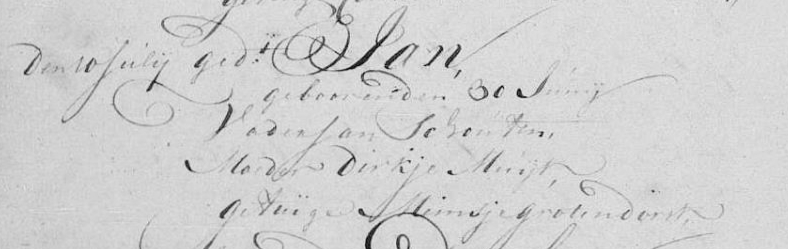 Den 10 Julij gedt. Jan,
gebooren den 30 Junij
Vader Jan Schouten,
Moeder Dirkje Muijt,
getuige Mimsje grotendorst,